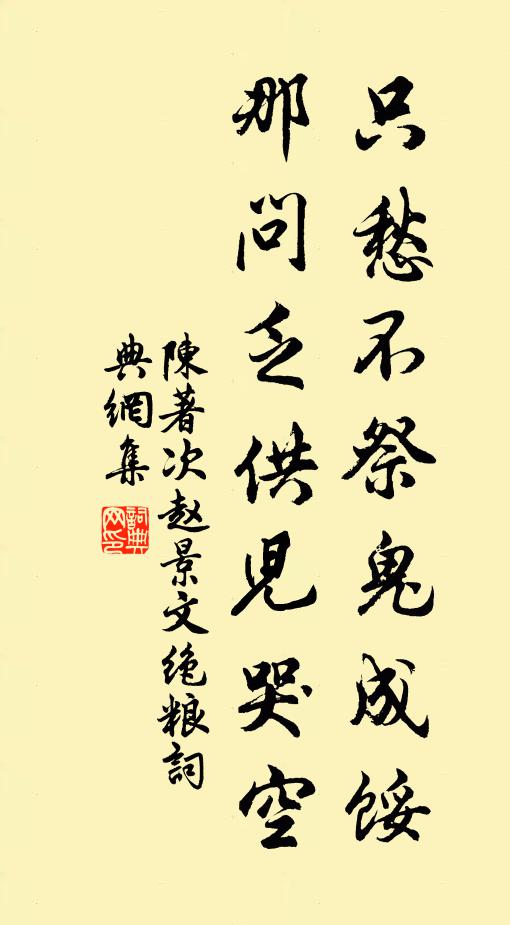 只愁不祭鬼成餒
那问乏供児哭空
陳著次赵景文绝粮詞
典網集
詞典網印